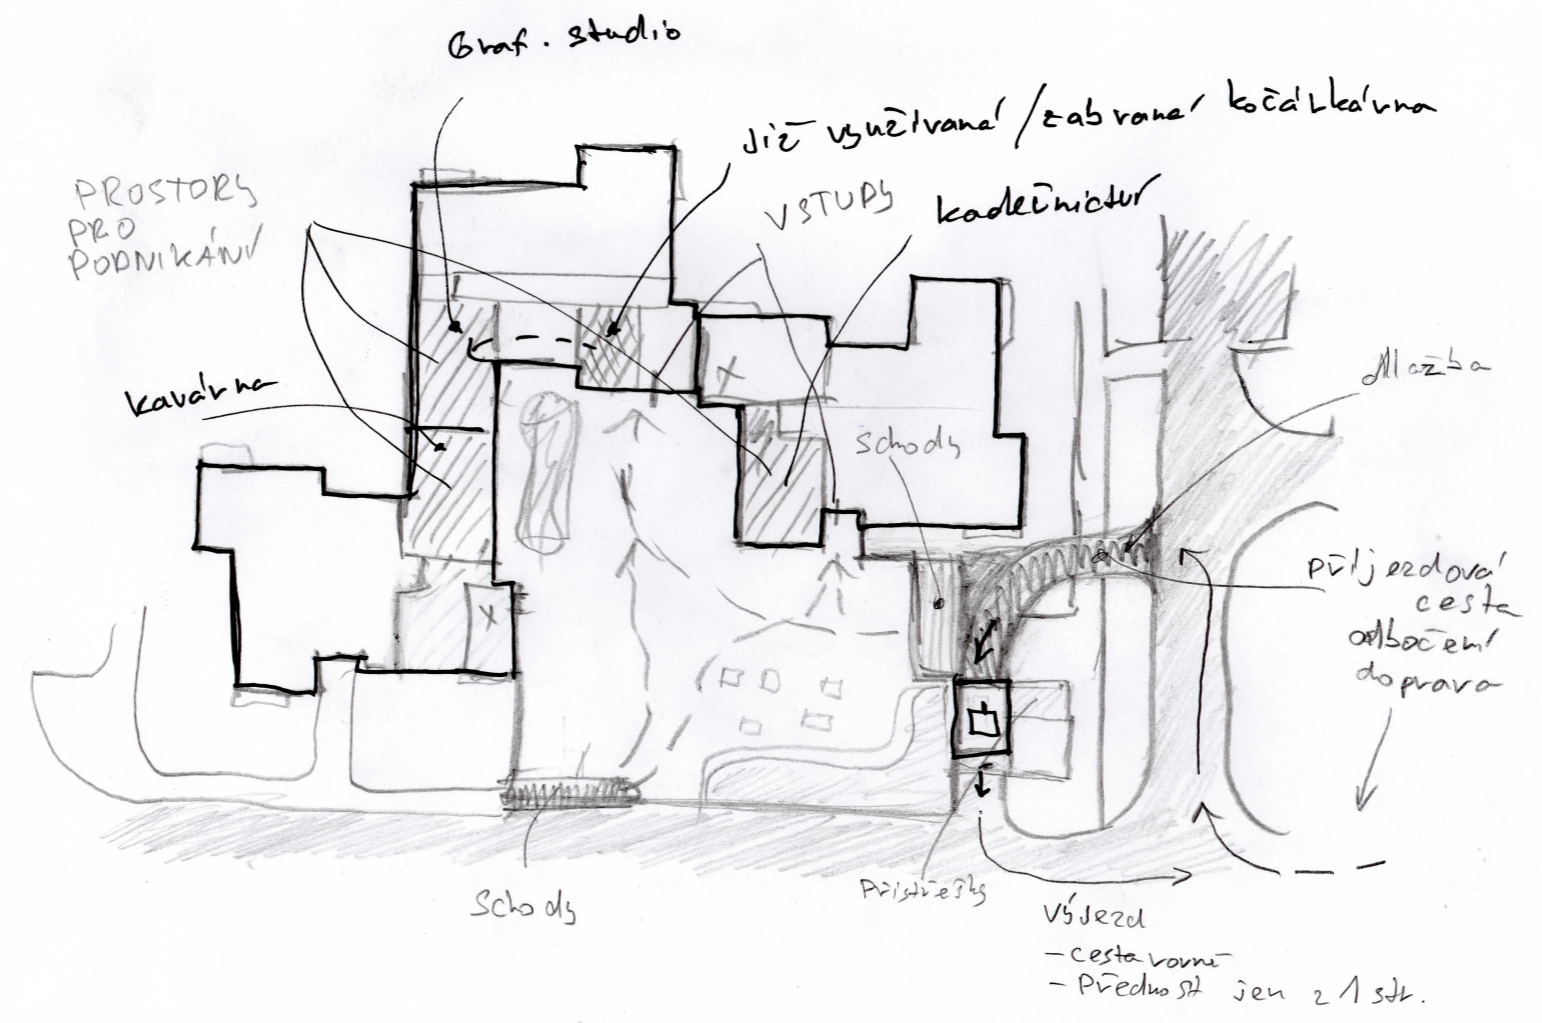 Graf. studio
Již využívaná / zabraná kočárkárna
PROSTORY
PRO
PODNIKÁNÍ
VSTUPY
kadeřnictví
kavárna
dlažba
schody
příjezdová
cesta
odbočení
doprava
schody
Přístřešky
Výjezd
- cesta rovně
- Přednost jen z 1 str.